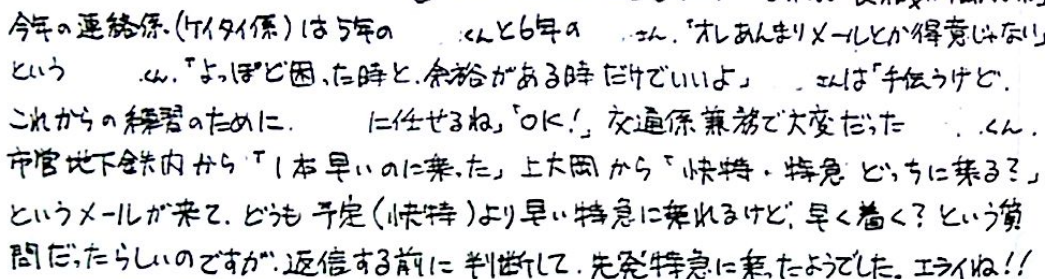 今年の連絡係(ケイタイ係)は5年の くんと6年の さん.「オレあんまりメールとか得意じゃない」
という くん.「よっぽど困った時と.余裕がある時だけでいいよ」 さんは「手伝うけど.
これからの練習のために. に任せるね」「OK!」交通係兼務で大変だった くん.
市営地下鉄内から「1本早いのに乗った」上大岡から「快特・特急どっちに乗る?」
というメールが来て.どうも予定(快特)より早い特急に乗れるけど,早く着く?という質
問だったらしいのですが.返信する前に判断して.先発特急に乗ったようでした。エライね!!